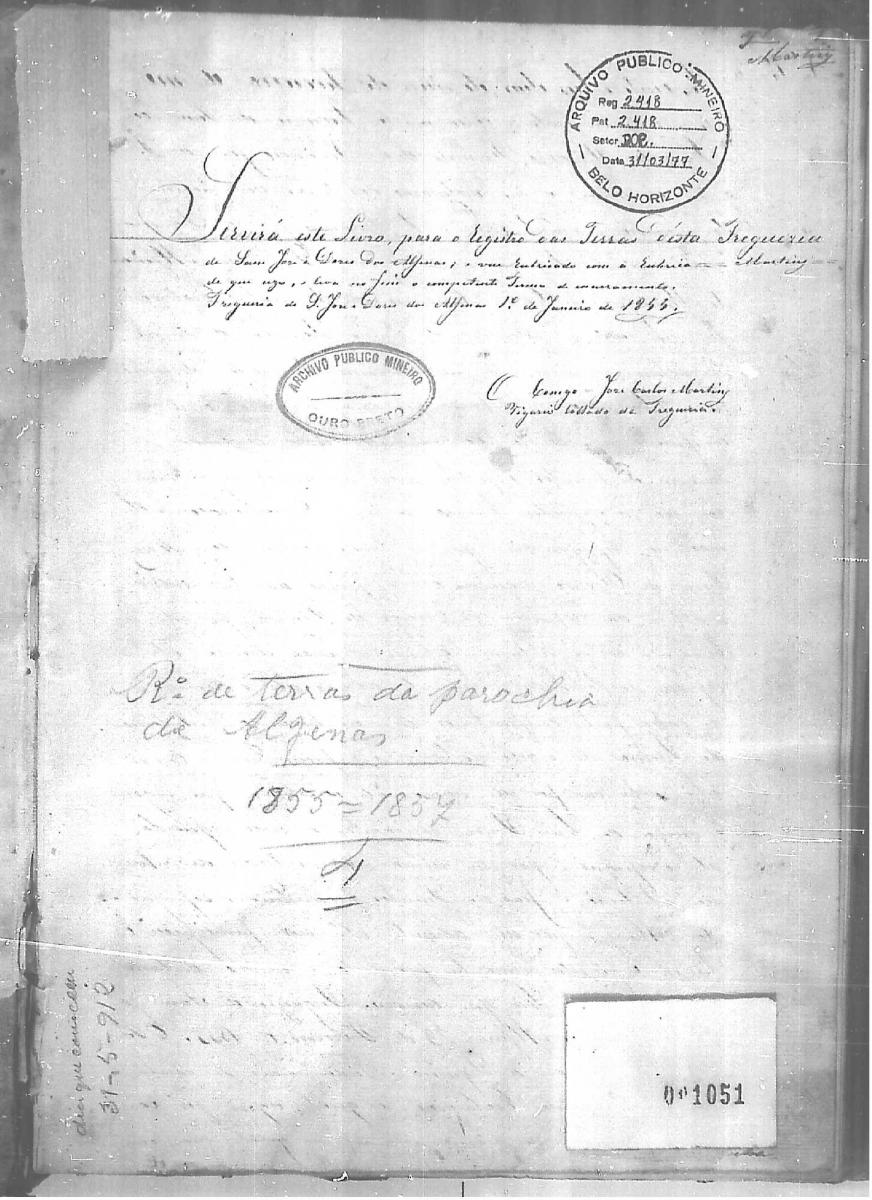 Martins
ARQUIVO PUBLICO MINEIRO
Reg 2418
Pat 2.418
Setor DOP.
Data 31/03/77
BELO HORIZONTE
Servirá este Livro, para o Registro das Terras d'esta Freguezia
de Sam José e Dores dos Alfenas; e vae Rubricado com a Rubrica = Martins =
de que uzo, e leva no fim o competente Termo de encerramento.
Freguezia de S. José e Dores dos Alfenas 1º de Janeiro de 1855.
O Conego José Carlos Martins
Vigario Collado da Freguezia.
ARCHIVO PUBLICO MINEIRO
OURO PRETO
Rº de terras da parochia
de Alfenas
1855 = 1857
4
31-5-912
1051